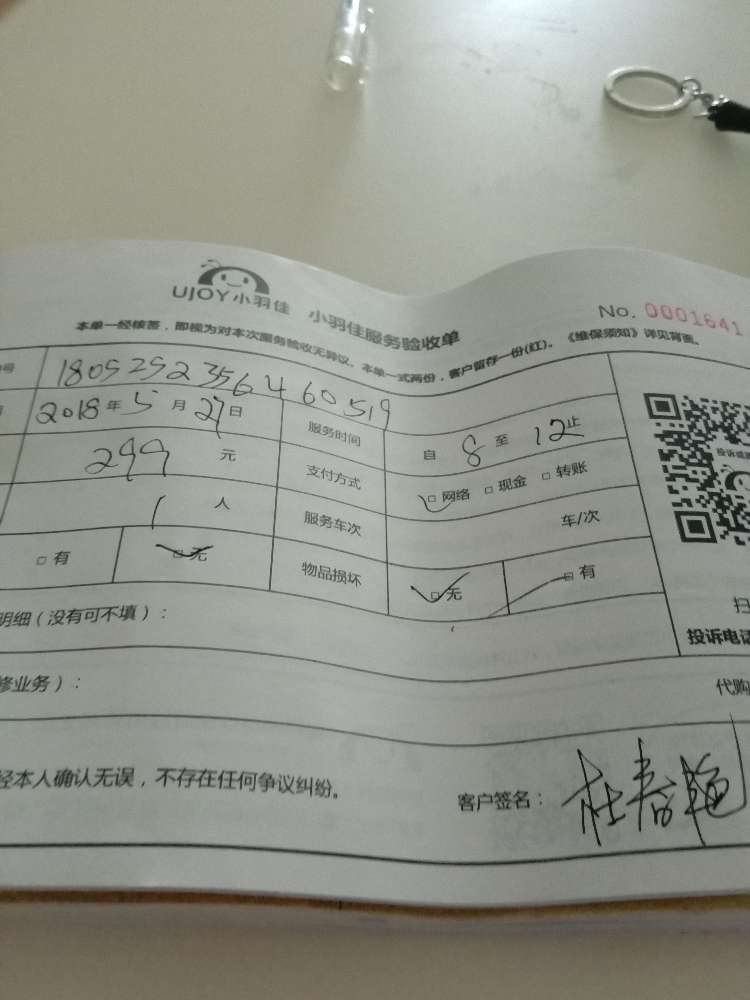 UJOY小羽佳 小羽佳服务验收单
No. 0001641
本单一经核签，即视为对本次服务验收无异议。本单一式两份，客户留存一份(红)。《维保须知》详见背面。
号 1805252356460519
2018年5月27日 服务时间 自 8 至 12止
299 元 支付方式 □网络 □现金 □转账
1 人 服务车次 车/次
□有 □无 物品损坏 □无 □有
明细（没有可不填）：
投诉电话
修业务）： 代购
经本人确认无误，不存在任何争议纠纷。
客户签名：杜春艳